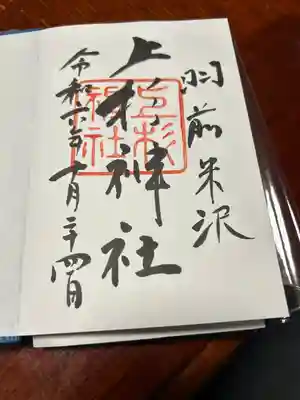 羽前米沢
上杉神社
上杉神社
令和六年十月二十四日